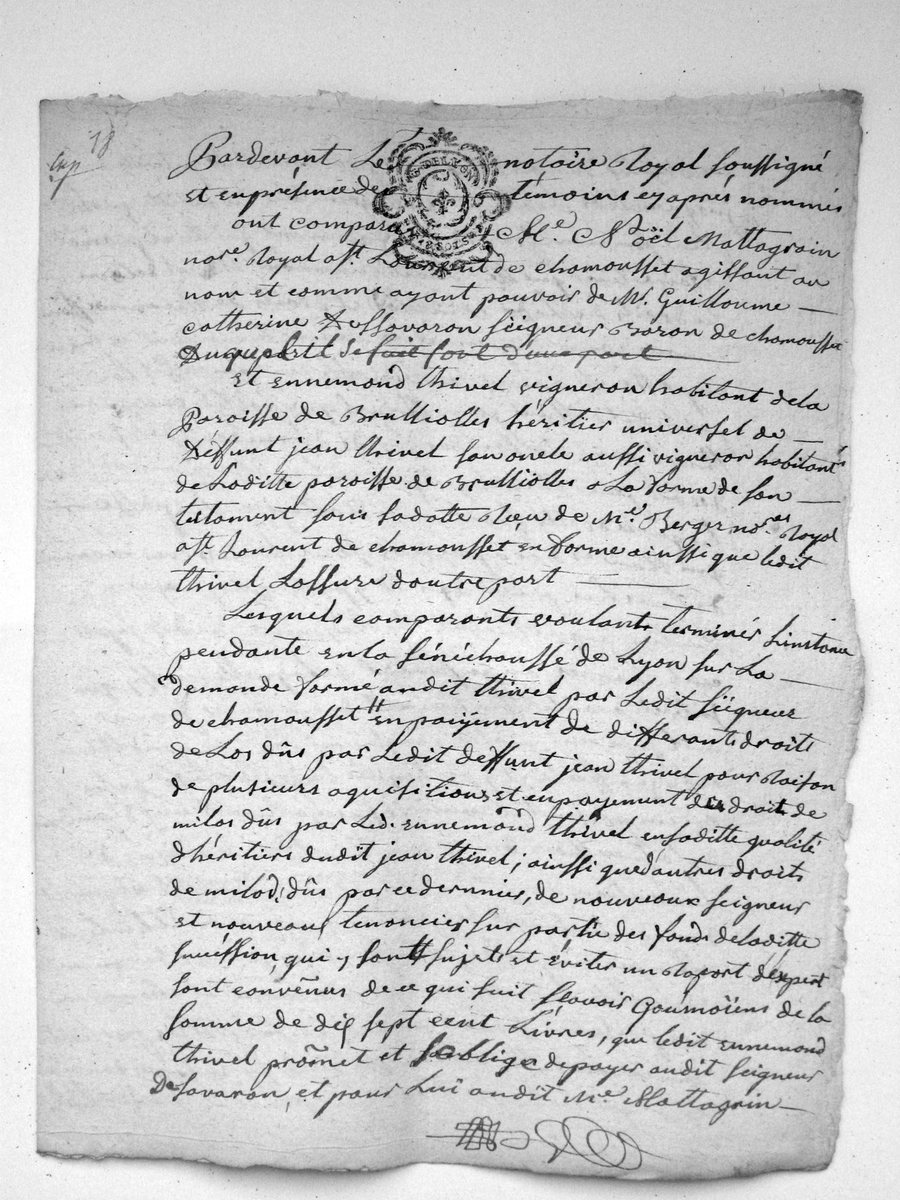 Exp 18
Pardevant Le notoire Royal soussigné
et en présence de témoins cy après nommés
ont compara Me. Noël Mattagrain
nore. Royal a St. Laurent de chamousset agissant au
nom et comme ayant pouvoir de Mr. Guilloume
Catherine De Savaron seigneur Baron de chamousset
Duquel il se fait fort d'une part
Et Ennemond thivel vigneron habitant de la
Paroisse de Brulliolles héritier universel de
Deffunt jean thivel son oncle aussi vigneron habitant
de Laditte paroisse de Brulliolles a La forme de son
testament sous sa datte Reçu de Me. Berger nore. Royal
a St. Laurent de chamousset en forme ainssi que ledit
thivel L'assure d'autre part
Lesquels comparants voulant terminer L'instance
pendante en la sénéchaussé de Lyon sur La
demande formé audit thivel par Ledit seigneur
de chamousset en paijement de differants droits
de Los dûs par Ledit deffunt jean thivel pour Raison
de plusieurs aquisitions et en payement des droits de
milos dûs par Led. Ennemond thivel en saditte qualité
d'héritiers dudit jean thivel; ainssi que d'autres droits
de milod, dûs par ce dernnier, de nouveaux seigneur
et nouveau tenancier sur partie des fonds de laditte
succession qui y sont sujets et éviter un Raport d'expert
sont convenus de ce qui suit scavoir qaumoïens de la
somme de dix sept cent Livres, que ledit Ennemond
thivel promet et s'oblige de payer audit seigneur
De Savaron, et pour Lui audit Me. Mattagrin